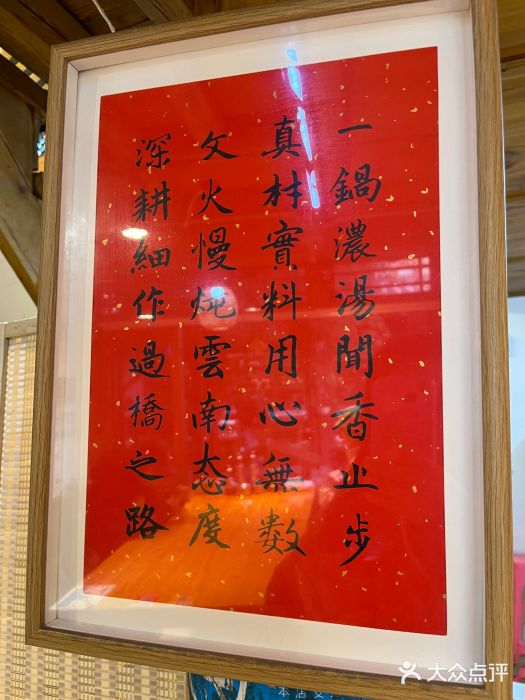 一鍋濃湯聞香止步
真材實料用心無數
文火慢炖雲南态度
深耕細作過橋之路
大众点评